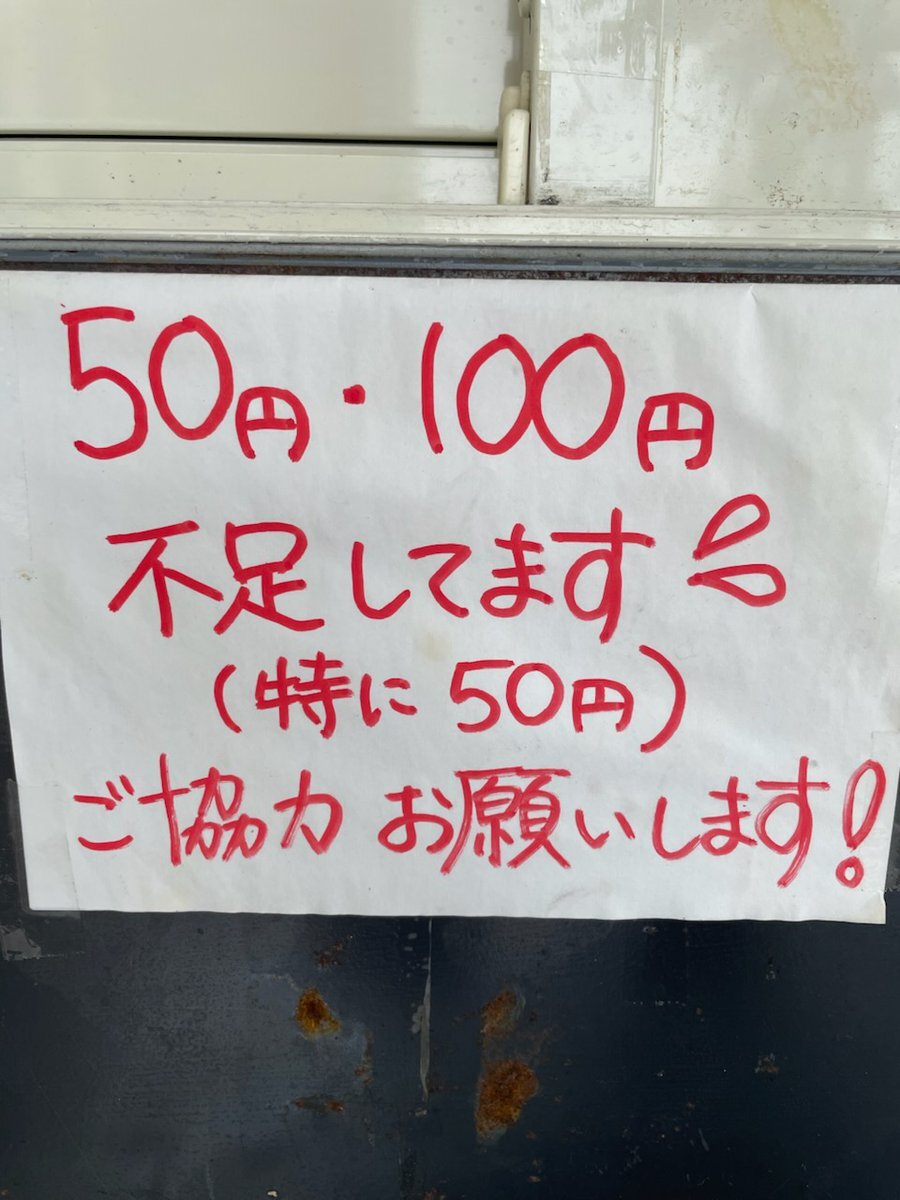 50円・100円
不足してます
(特に50円)
ご協力お願いします!